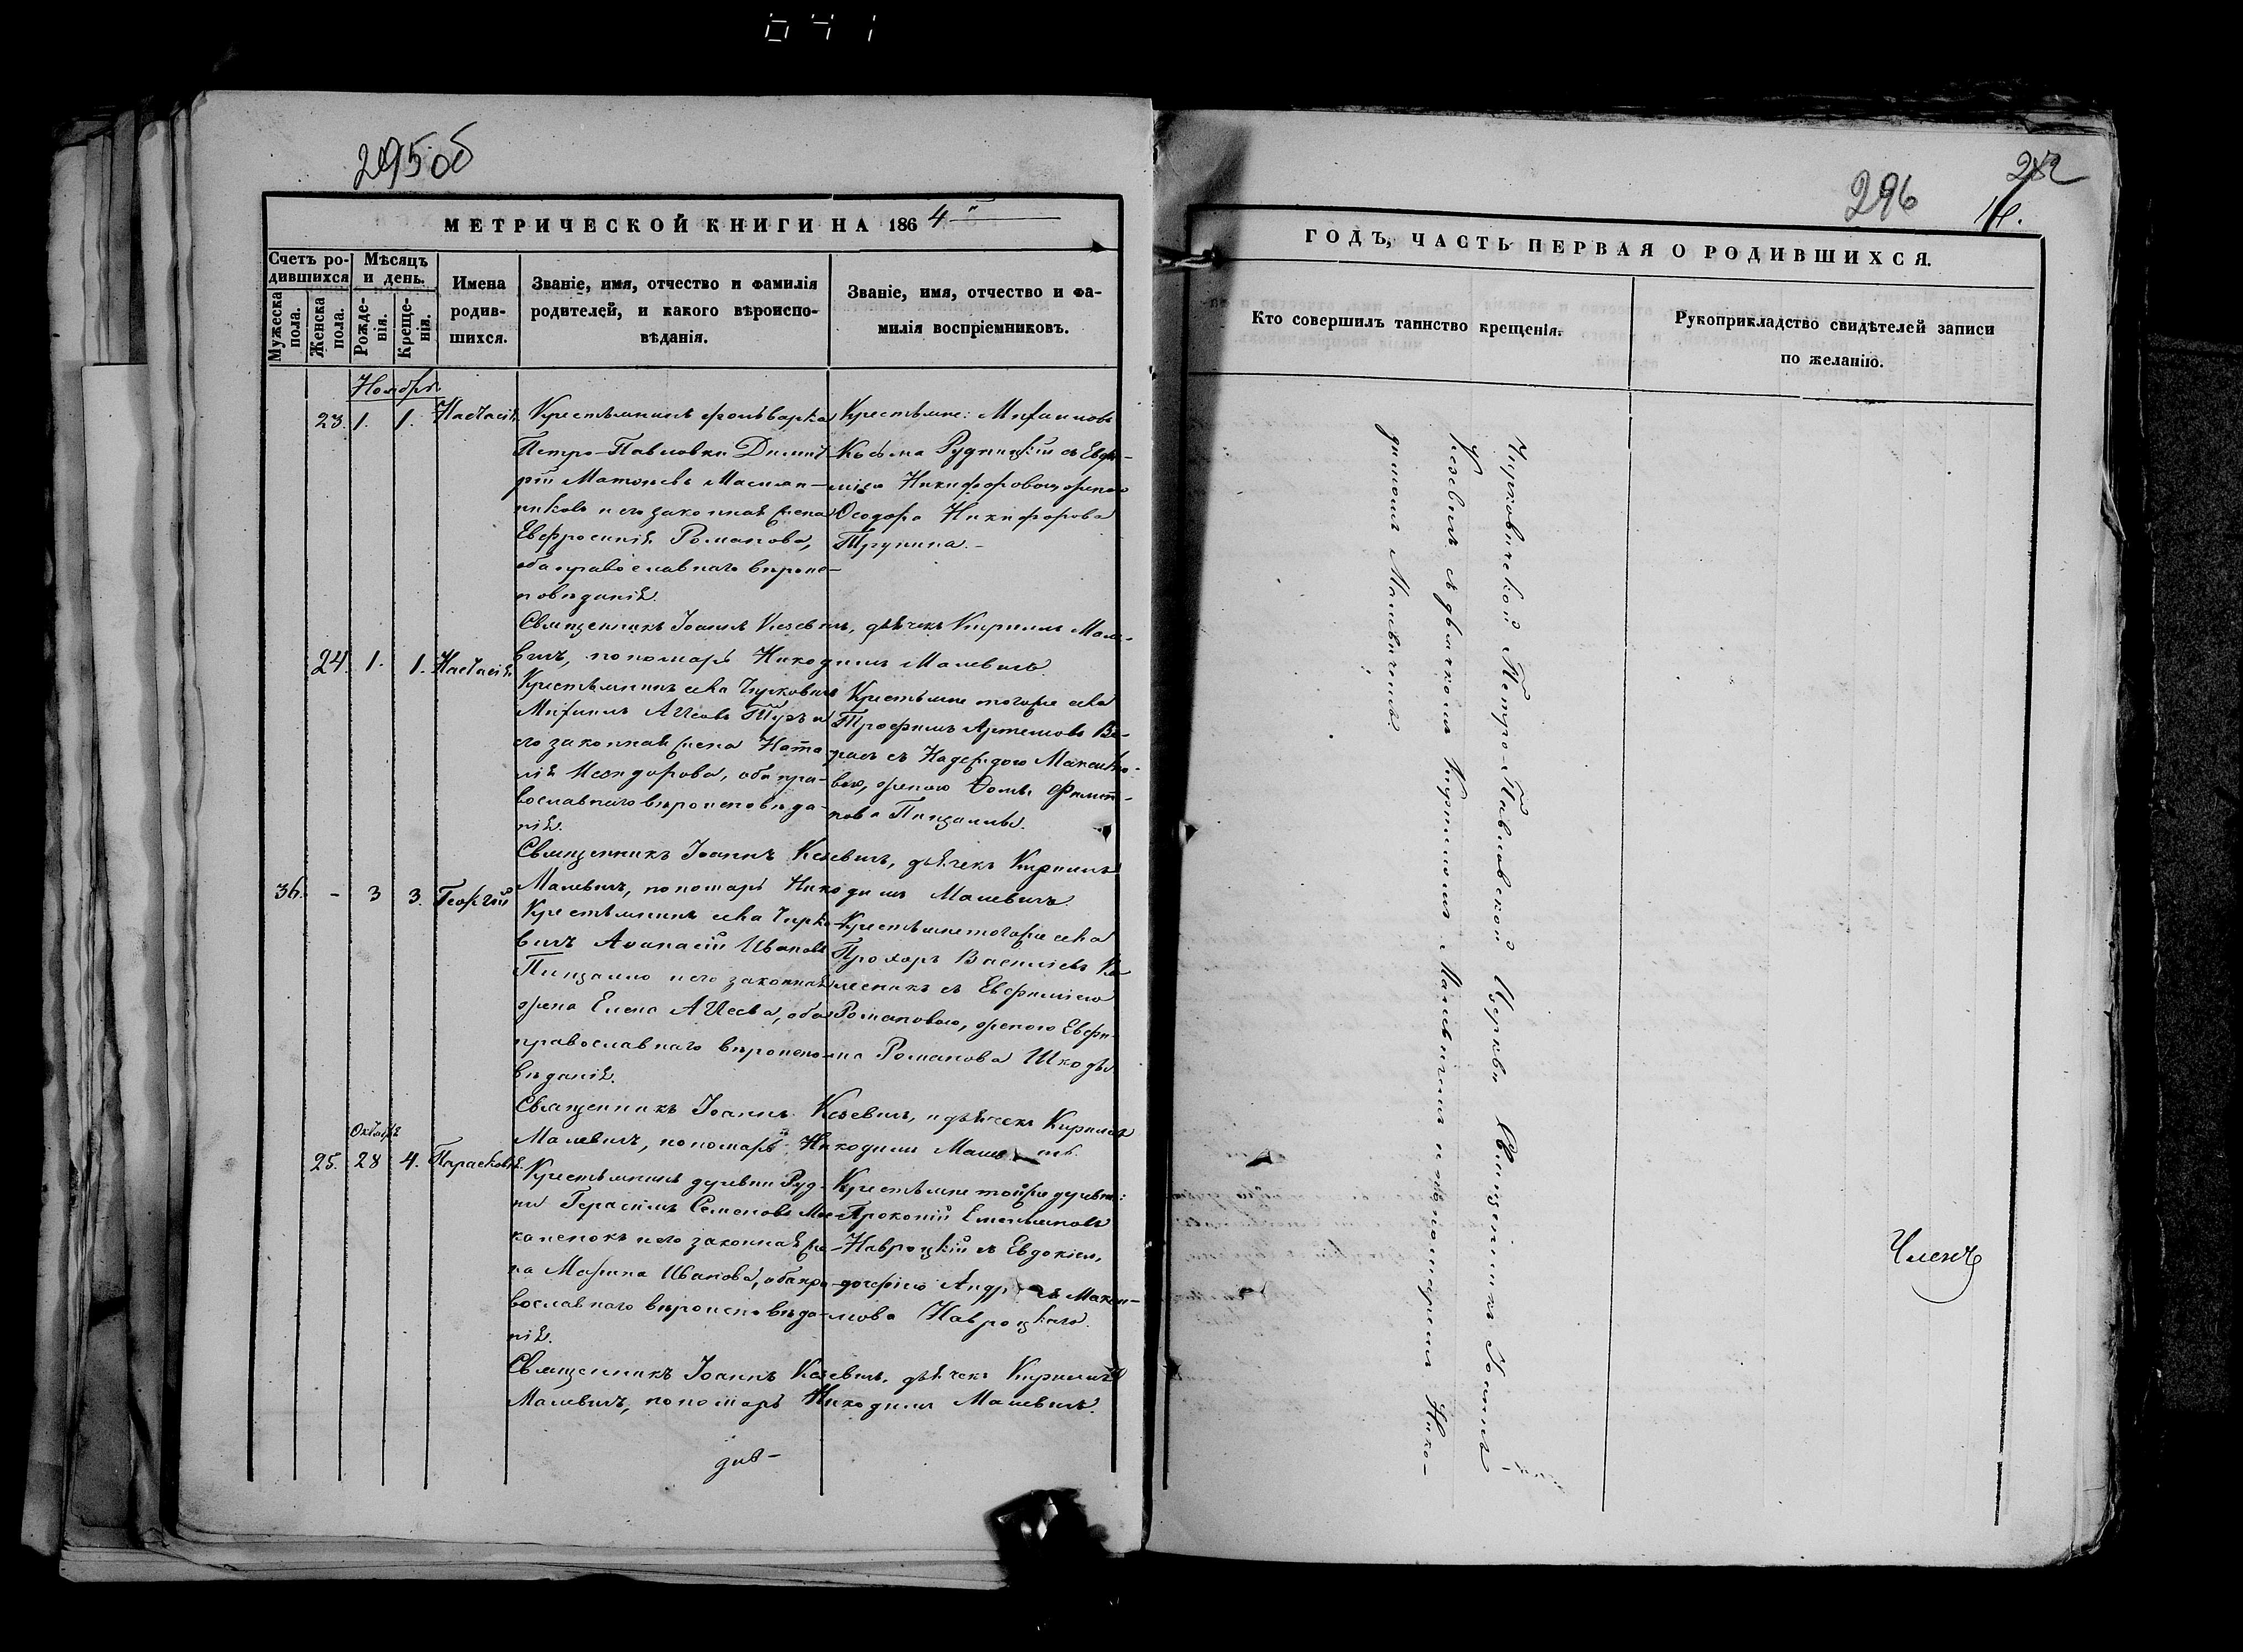 041
295об
МЕТРИЧЕСКОЙ КНИГИ НА 1864
Счетъ ро-
дившихся
Мѣсяцъ
и день.
Мужеска
пола.
Женска
пола.
Рожде-
нія.
Креще-
нія.
Имена
родив-
шихся.
Званіе, имя, отчество и фамилія
родителей, и какого вѣроиспо-
вѣданія.
Званіе, имя, отчество и фа-
милія воспріемниковъ.
Ноября
23. 1. 1. Настасія
Крестьянинъ фольварка
Петро-Павловки Димит-
рій
и его законная жена
Евфросинія Романова,
оба православнаго вѣроис-
повѣданія.
Крестьяне: Михаиловъ
Козьма Рудницкій съ Евфи-
міею Никифоровою женою
Ѳеодора Никифорова
Трунина.
Священникъ Іоаннъ Кезевичъ, дьячекъ Кириллъ Мале-
вичъ, пономарь Никодимъ Малевичъ.
24. 1. 1. Настасія
Крестьянинъ села Чирковичъ
Михаилъ и
его законная жена Ната-
лія оба пра-
вославнаго вѣроисповѣда-
нія.
Крестьяне тогоже села
Трофимъ Артемовъ
съ Надеждою
вою, женою Ѳомы Филип-
пова
Священникъ Іоаннъ Кезевичъ, дьячекъ Кириллъ
Малевичъ, пономарь Никодимъ Малевичъ.
36. - 3 3. Георгій
Крестьянинъ села Чирко-
вичъ Аѳанасій Ивановъ
и его законная
жена Елена оба
православнаго вѣроиспо-
вѣданія.
Крестьяне тогоже села
Прохоръ Васильевъ Ко-
лесникъ съ Евфиміею
Романовою, женою Евфи-
ма Романова Шкоды
Священникъ Іоаннъ Кезевичъ, и дьячекъ Кириллъ
Малевичъ, пономарь Никодимъ
Октября
25. 28 4. Парасковія
Крестьянинъ деревни Руд-
ни Герасимъ Семеновъ
и его законная же-
на Марина Иванова, оба пра-
вославнаго вѣроисповѣда-
нія.
Крестьяне тойже деревни:
Прокопій Емельяновъ
Навроцкій съ Евдокіею,
дочерью Макси-
мова Навроцкаго.
Священникъ Іоаннъ Кезевичъ, дьячекъ Кириллъ
Малевичъ, пономарь Никодимъ Малевичъ.
296
ГОДЪ, ЧАСТЬ ПЕРВАЯ О РОДИВШИХСЯ.
Кто совершилъ таинство крещенія.
Рукоприкладство свидѣтелей записи
по желанію.
Чирковичской Петро-Павловской Церкви Священникъ Іоаннъ
Кезевичъ съ дьячкомъ Кирилломъ Малевичемъ и пономаремъ Нико-
димомъ Малевичемъ.
Членъ